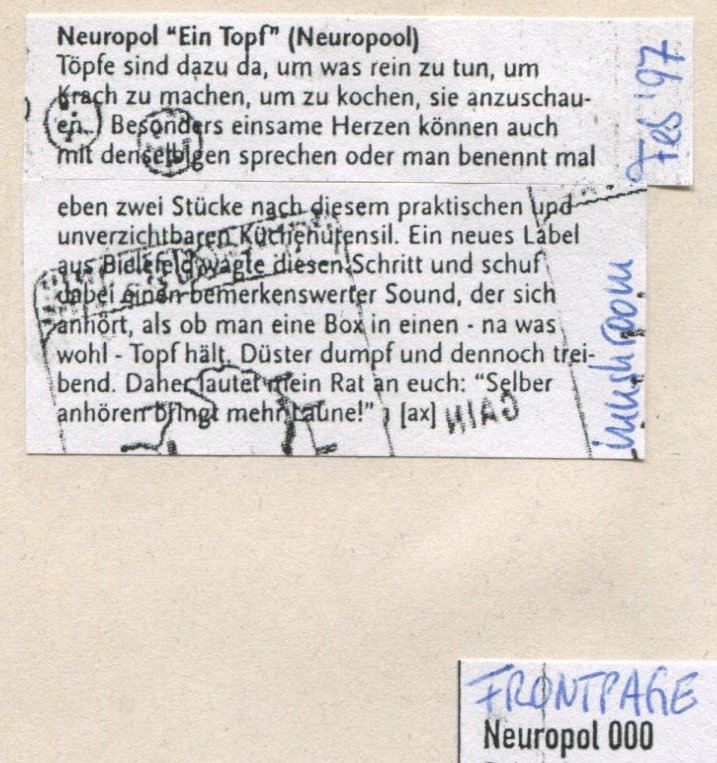 Neuropol "Ein Topf" (Neuropool)
Töpfe sind dazu da, um was rein zu tun, um
Krach zu machen, um zu kochen, sie anzuschau-
en. Besonders einsame Herzen können auch
mit denselbigen sprechen oder man benennt mal
Feb '97
eben zwei Stücke nach diesem praktischen und
unverzichtbaren Küchenutensil. Ein neues Label
aus Bielefeld wagte diesen Schritt und schuf
dabei einen bemerkenswerter Sound, der sich
anhört, als ob man eine Box in einen - na was
wohl - Topf hält. Düster dumpf und dennoch trei-
bend. Daher lautet mein Rat an euch: "Selber
anhören bringt mehr Laune!" [ax]
mushroom
FRONTPAGE
Neuropol 000